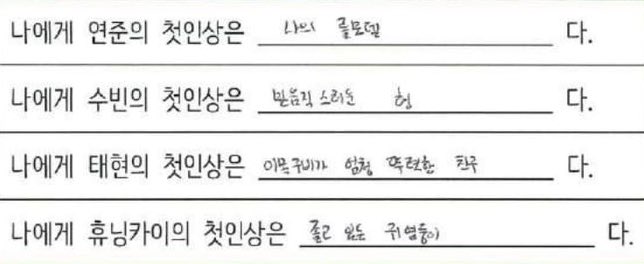 나에게 연준의 첫인상은 나의 롤모델 다.
나에게 수빈의 첫인상은 믿음직스러운 형 다.
나에게 태현의 첫인상은 이목구비가 엄청 뚜렷한 친구 다.
나에게 휴닝카이의 첫인상은 졸고 있는 귀염둥이 다.